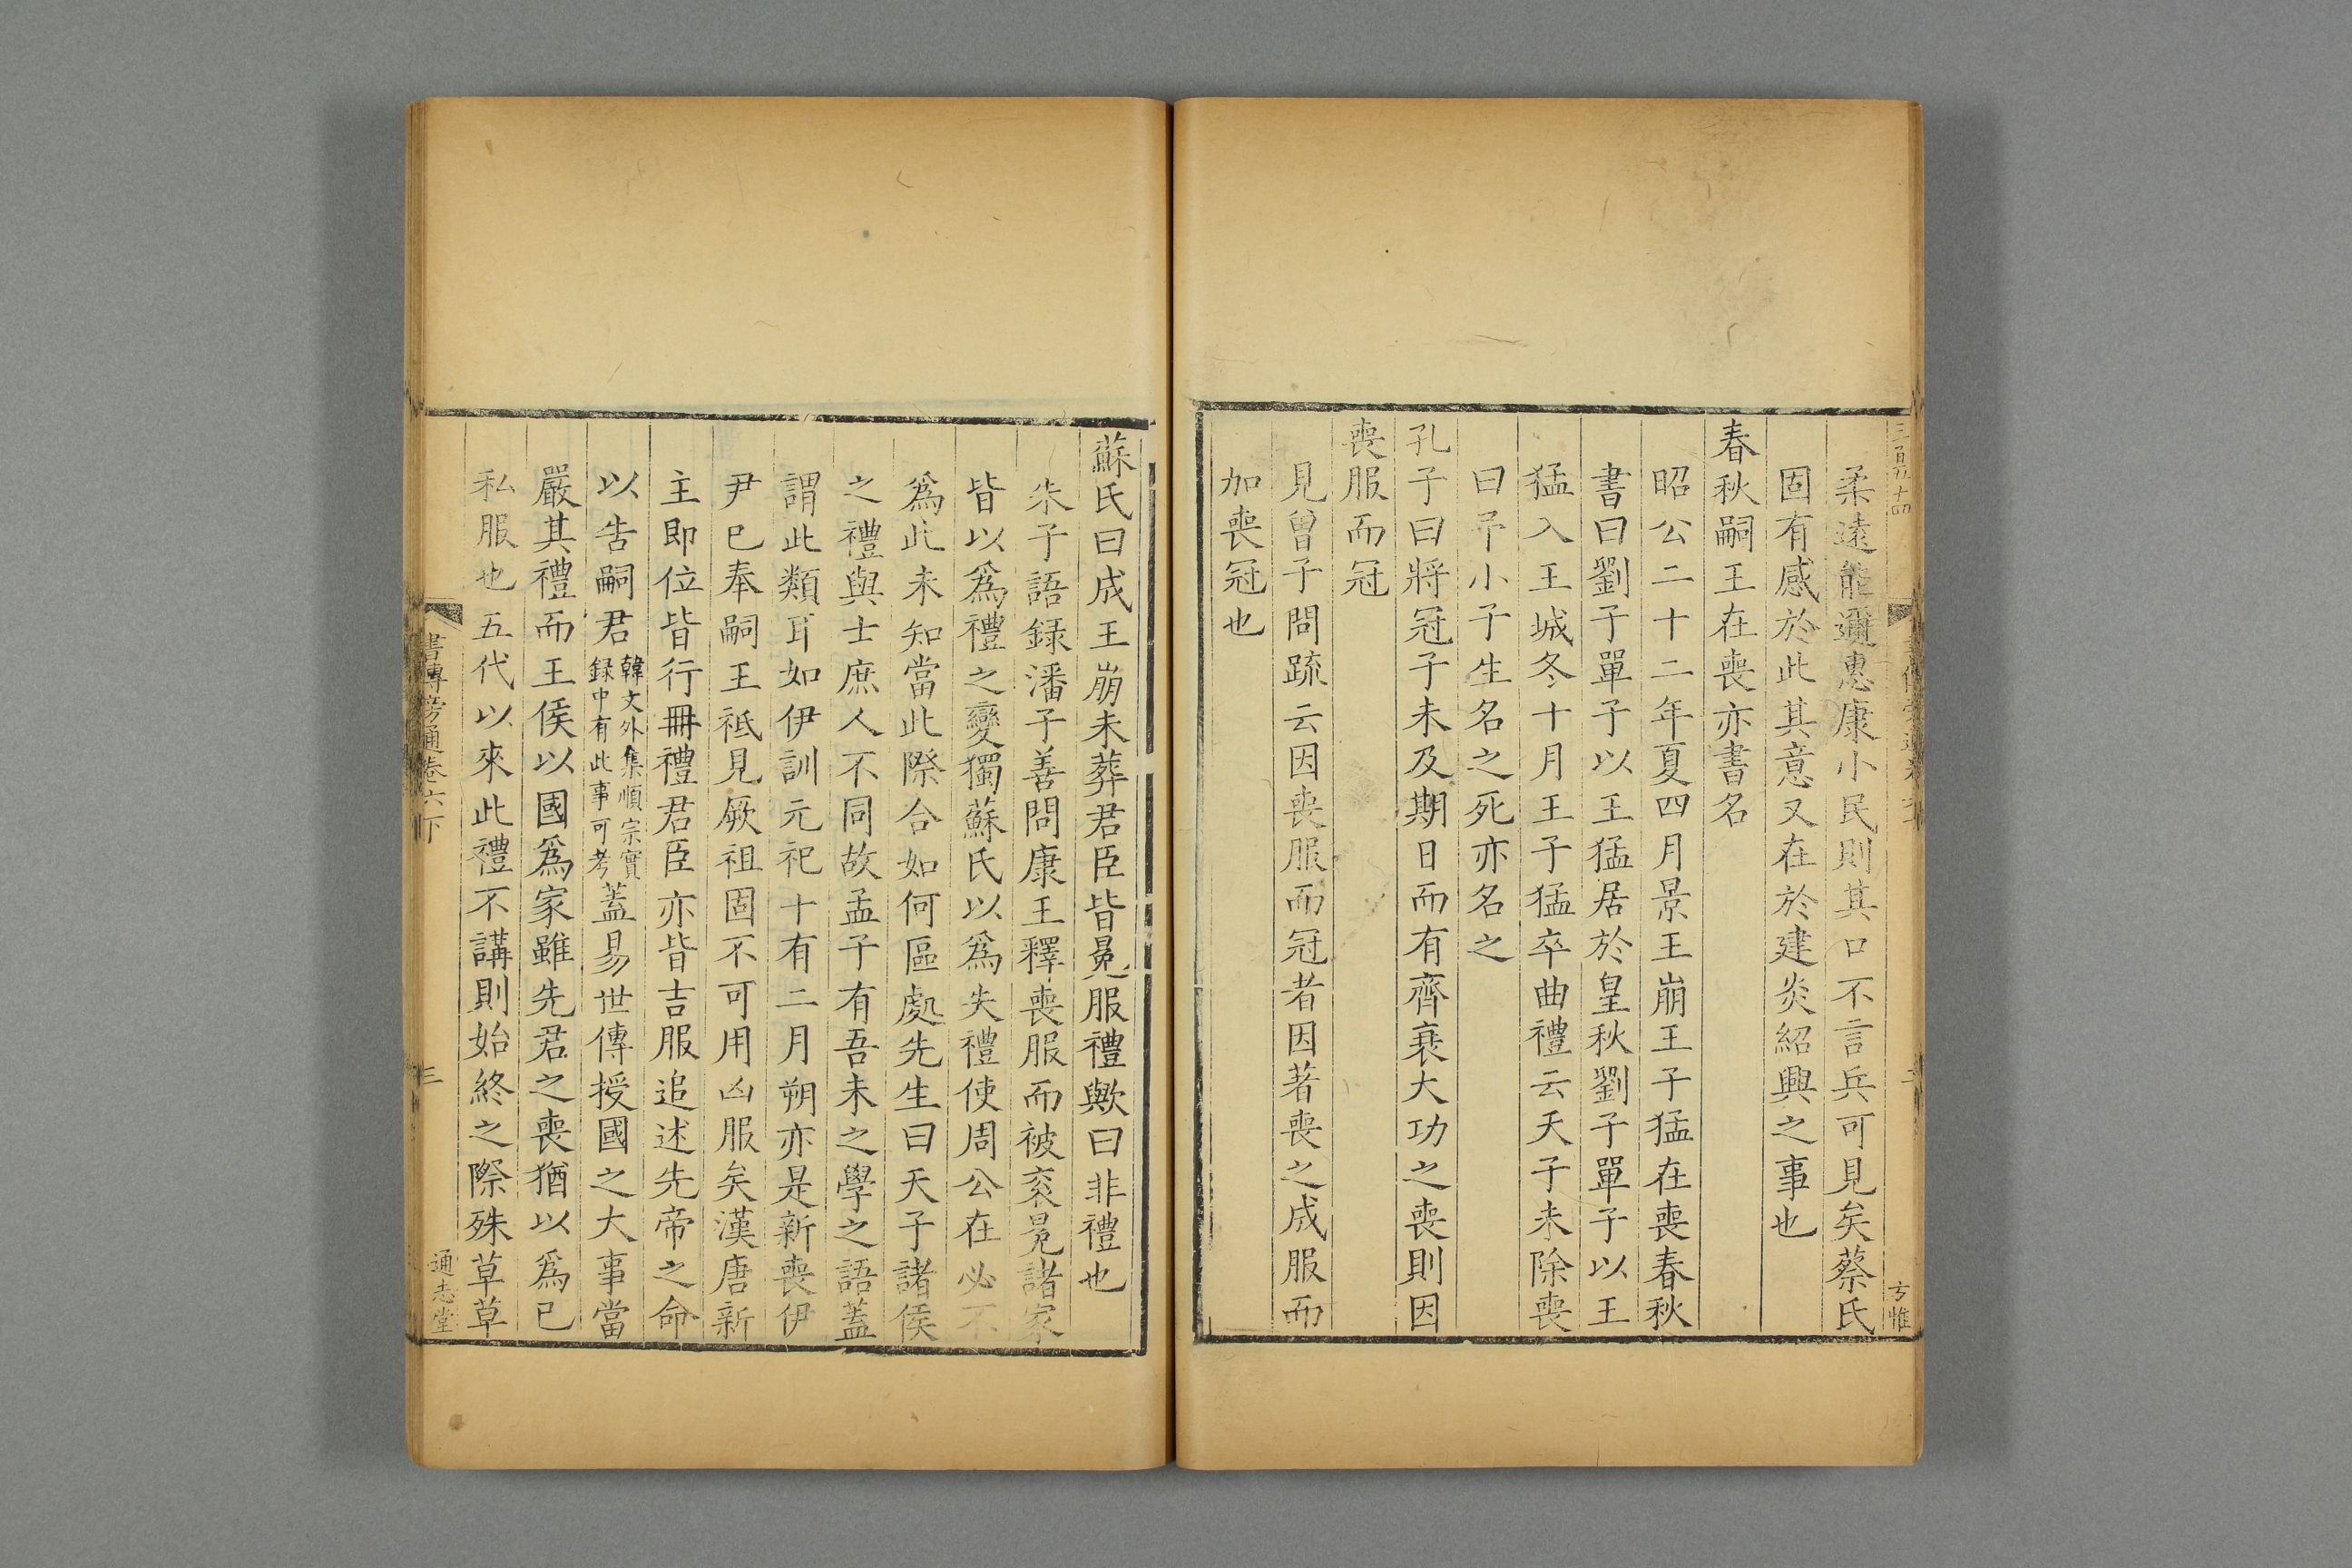 三百五十四
柔遠能邇惠康小民則其口不言兵可見矣蔡氏
固有感於此其意又在於建炎紹興之事也
春秋嗣王在喪亦書名
昭公二十二年夏四月景王崩王子猛在喪春秋
書曰劉子單子以王猛居於皇秋劉子單子以王
猛入王城冬十月王子猛卒曲禮云天子未除喪
曰予小子生名之死亦名之
孔子曰將冠子未及期日而有齊衰大功之喪則因
喪服而冠
見曾子問疏云因喪服而冠者因著喪之成服而
加喪冠也
蘇氏曰成王崩未葬君臣皆冕服禮歟曰非禮也
朱子語録潘子善問康王釋喪服而被衮冕諸家
皆以爲禮之變獨蘇氏以爲失禮使周公在必不
爲此未知當此際合如何區處先生曰天子諸侯
之禮與士庶人不同故孟子有吾未之學之語蓋
謂此類耳如伊訓元祀十有二月朔亦是新喪伊
尹已奉嗣王祗見厥祖固不可用凶服矣漢唐新
主即位皆行冊禮君臣亦皆吉服追述先帝之命
以告嗣君韓文外集順宗實録中有此事可考蓋易世傳授國之大事當
嚴其禮而王侯以國爲家雖先君之喪猶以爲已
私服也五代以來此禮不講則始終之際殊草草
書傳旁通卷六下
三
通志堂